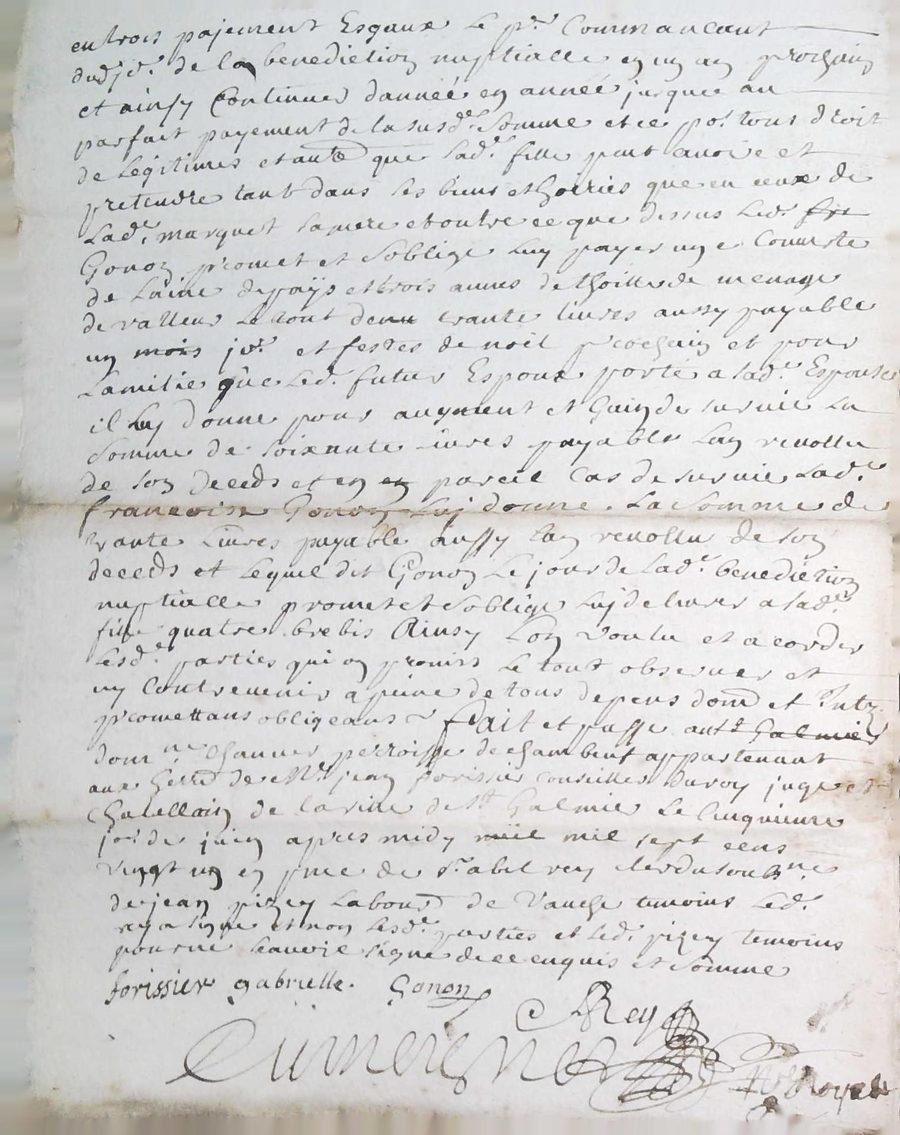 en trois pajement Esgaux Le pr. Commancant
dud jr. de la benediction nuptialle en un an prochain
et ainsy Continuer dannéé en année jusques au
parfait payement de la susde. Somme et ce por. tous droit
de Legitimes et autre que lade. fille peut avoire et
pretendre tant dans ses biens et hoiries que en ceux de
Lade. marquet sa mere et outre ce que dessus Led.
Gonon promet et soblige luy payer une Couverte
de Laine de païs et trois aunes de thoille de menage
de valleur Le tout de trante livres aussy payable
un mois jor. et festes de noel prochain et pour
Lamitie que Led. futur Espoux porte a sade. Espouse
il luy donne pour augment et Gain de survie La
Somme de soixante Livres payable Lan revollu
de son deceds et en en pareil Cas de survie Lade.
francoise Gonon Luj donne La Somme de
trante Livres payable aussy Lan revollu de son
deceds et Lequel dit Gonon Le jour de Lade. benediction
nuptialle promet et soblige Luj delivrer a sade.
fille quatre brebis Ainsy Lon voulu et acorder
Lesde. parties qui on promis Le tout observer et
ny Contrevenir a peine de tous depens dom et Intz.
promettans obligeans Fait et passe Galmier
dom ne. perroisse de chambeuf appartenant
aux de Mr. jean forissier Conseiller du roy juge et
Chatellain de la ville de St. Galmier Le Cinquieme
jor. de juin apres midy mil mil sept cens
vingt un en pnce de sr. abel rey clerc
de jean pizey Labour de temoins Led.
rey a signe et non Lesde. parties et Led. pizey temoins
pour ne scavoir signe de ce enquis et somme
forissier gabrielle. Gonon
Rey